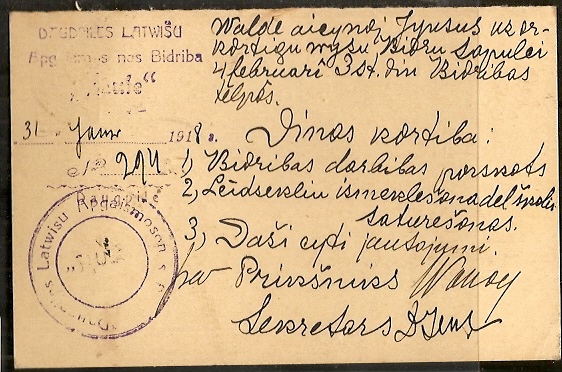 DZEDRILES LATWIŠU
Apgaismošonas Bidriba
31. Janv 1918 g.
№ 294
Walde aicynoj Jyusus uz or-
kortigu wysu Bidru Sapulci
4 februarī 3 st. din Bidribas
telpōs.
Dinas kortiba:
1, Bidribas darbibas porskots
2, Leidseklu izmeklešona del školu
saturešonas.
3, Daži cyti jautojumi.
Prikšniks
Sekretars
Latwišu Apgaismošon